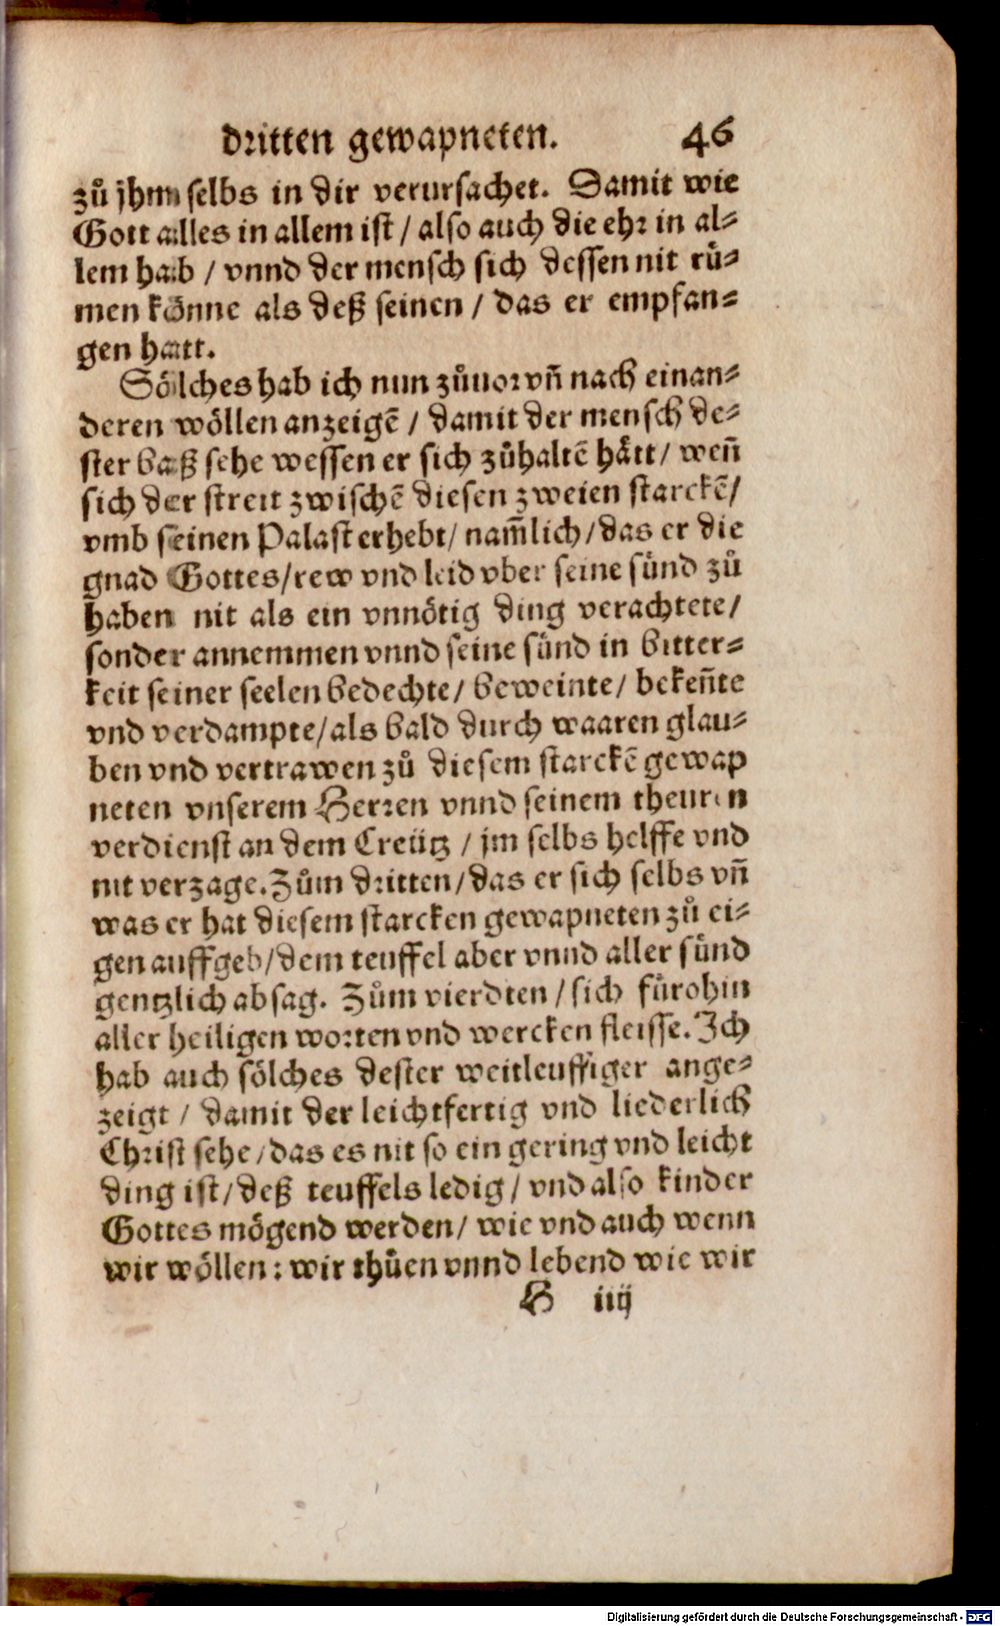 dritten gewapneten. 46
zů jhm selbs in dir verursachet. Damit wie
Gott alles in allem ist / also auch die ehr in al⸗
lem hab / vnnd der mensch sich dessen nit rů⸗
men könne als deß seinen / das er empfan⸗
gen hatt.
Sölches hab ich nun zůuor vñ nach einan⸗
deren wöllen anzeigẽ / damit der mensch de⸗
ster baß sehe wessen er sich zůhaltẽ hått / weñ
sich der streit zwischẽ diesen zweien starckẽ /
vmb seinen Palast erhebt / nam̃lich / das er die
gnad Gottes / rew vnd leid vber seine sünd zů
haben nit als ein vnnötig ding verachtete /
sonder annemmen vnnd seine sünd in bitter⸗
keit seiner seelen bedechte / beweinte / bekeñte
vnd verdampte / als bald durch waaren glau⸗
ben vnd vertrawen zů diesem starckẽ gewap
neten vnserem Herren vnnd seinem theuren
verdienst an dem Creütz / jm selbs helffe vnd
nit verzage. Zům dritten / das er sich selbs vñ
was er hat diesem starcken gewapneten zů ei⸗
gen auffgeb / dem teuffel aber vnnd aller sünd
gentzlich absag. Zům vierdten / sich fürohin
aller heiligen worten vnd wercken fleisse. Ich
hab auch sölches dester weitleuffiger ange⸗
zeigt / damit der leichtfertig vnd liederlich
Christ sehe / das es nit so ein gering vnd leicht
ding ist / deß teuffels ledig / vnd also kinder
Gottes mögend werden / wie vnd auch wenn
wir wöllen: wir thůen vnnd lebend wie wir
H iiij
Digitalisierung gefördert durch die Deutsche Forschungsgemeinschaft - DFG